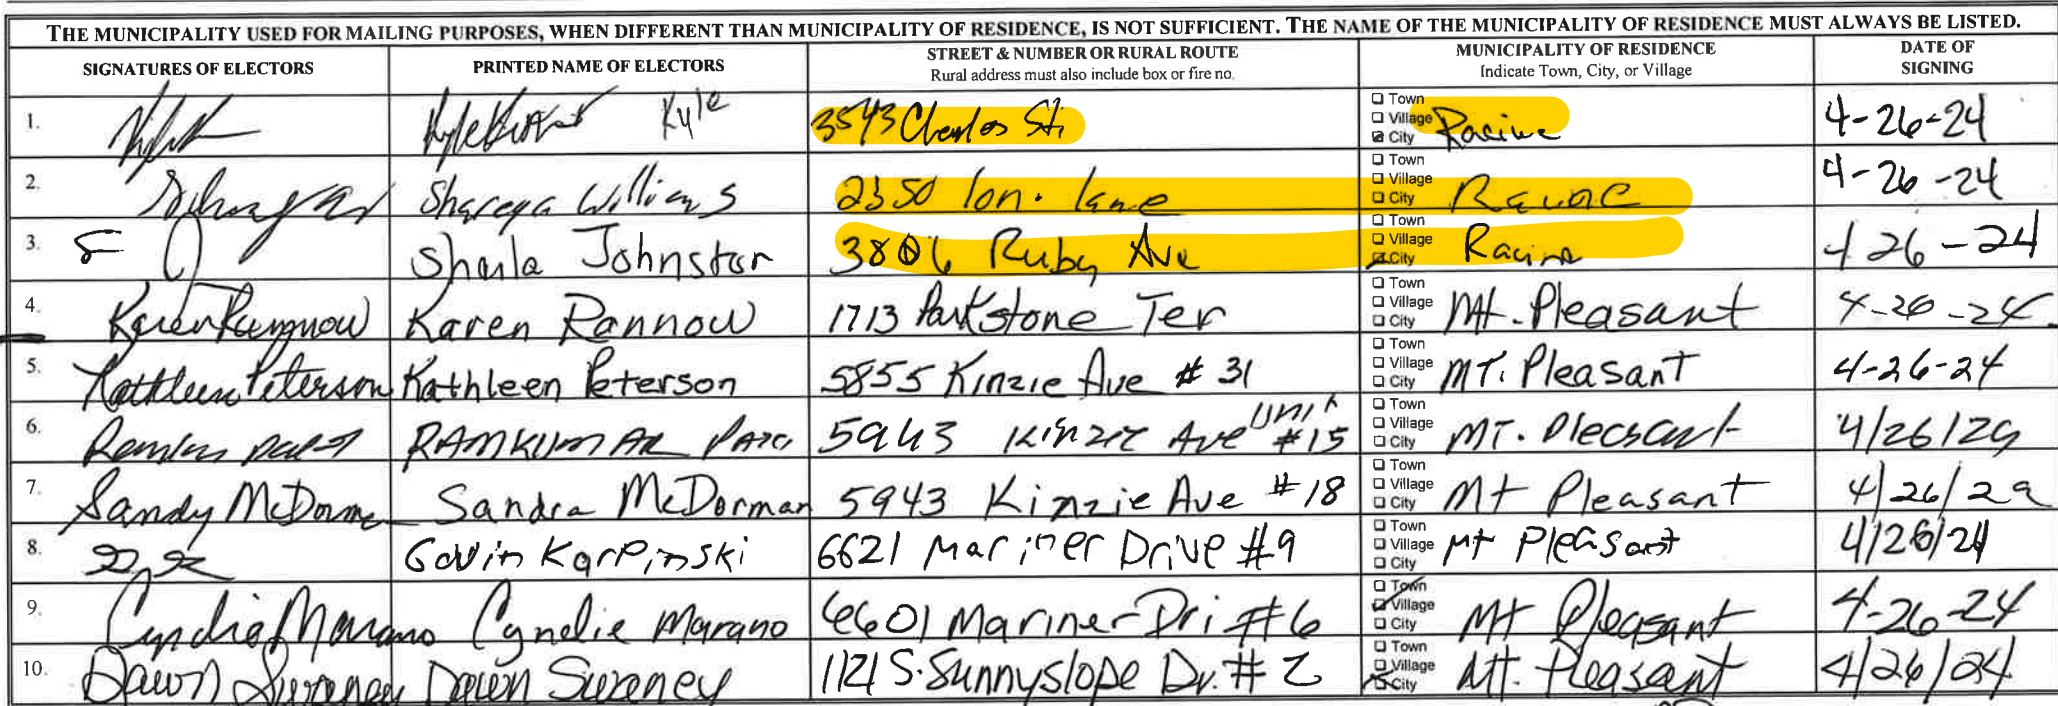 THE MUNICIPALITY USED FOR MAILING PURPOSES, WHEN DIFFERENT THAN MUNICIPALITY OF RESIDENCE, IS NOT SUFFICIENT. THE NAME OF THE MUNICIPALITY OF RESIDENCE MUST ALWAYS BE LISTED.
SIGNATURES OF ELECTORS PRINTED NAME OF ELECTORS STREET & NUMBER OR RURAL ROUTE MUNICIPALITY OF RESIDENCE DATE OF SIGNING
Rural address must also include box or fire no. Indicate Town, City, or Village
1. Kyle 3543 Charles St. Town Village City Racine 4-26-24
2. Williams 2350 lane Town Village City Racine 4-26-24
3. Johnston 3806 Ruby Ave Town Village City Racine 4 26-24
4. Karen Rannow Karen Rannow 1713 Parkstone Ter Town Village City Mt. Pleasant 4-26-24
5. Kathleen Peterson Kathleen Peterson 5855 Kinzie Ave # 31 Town Village City MT. Pleasant 4-26-24
6. RAMKUMAR 5943 KINZIE Ave Unit #15 Town Village City MT. Pleasant 4/26/24
7. Sandy McDorman Sandra McDorman 5943 Kinzie Ave #18 Town Village City Mt Pleasant 4/26/24
8. Gavin Karpinski 6621 Mariner Drive #9 Town Village City Mt Pleasant 4/26/24
9. Cyndie Marano Cyndie Marano 6601 Mariner Dri #6 Town Village City Mt Pleasant 4-26-24
10. Dawn Sweeney Dawn Sweeney 1121 S. Sunnyslope Dr. # 2 Town Village City Mt. Pleasant 4/26/24